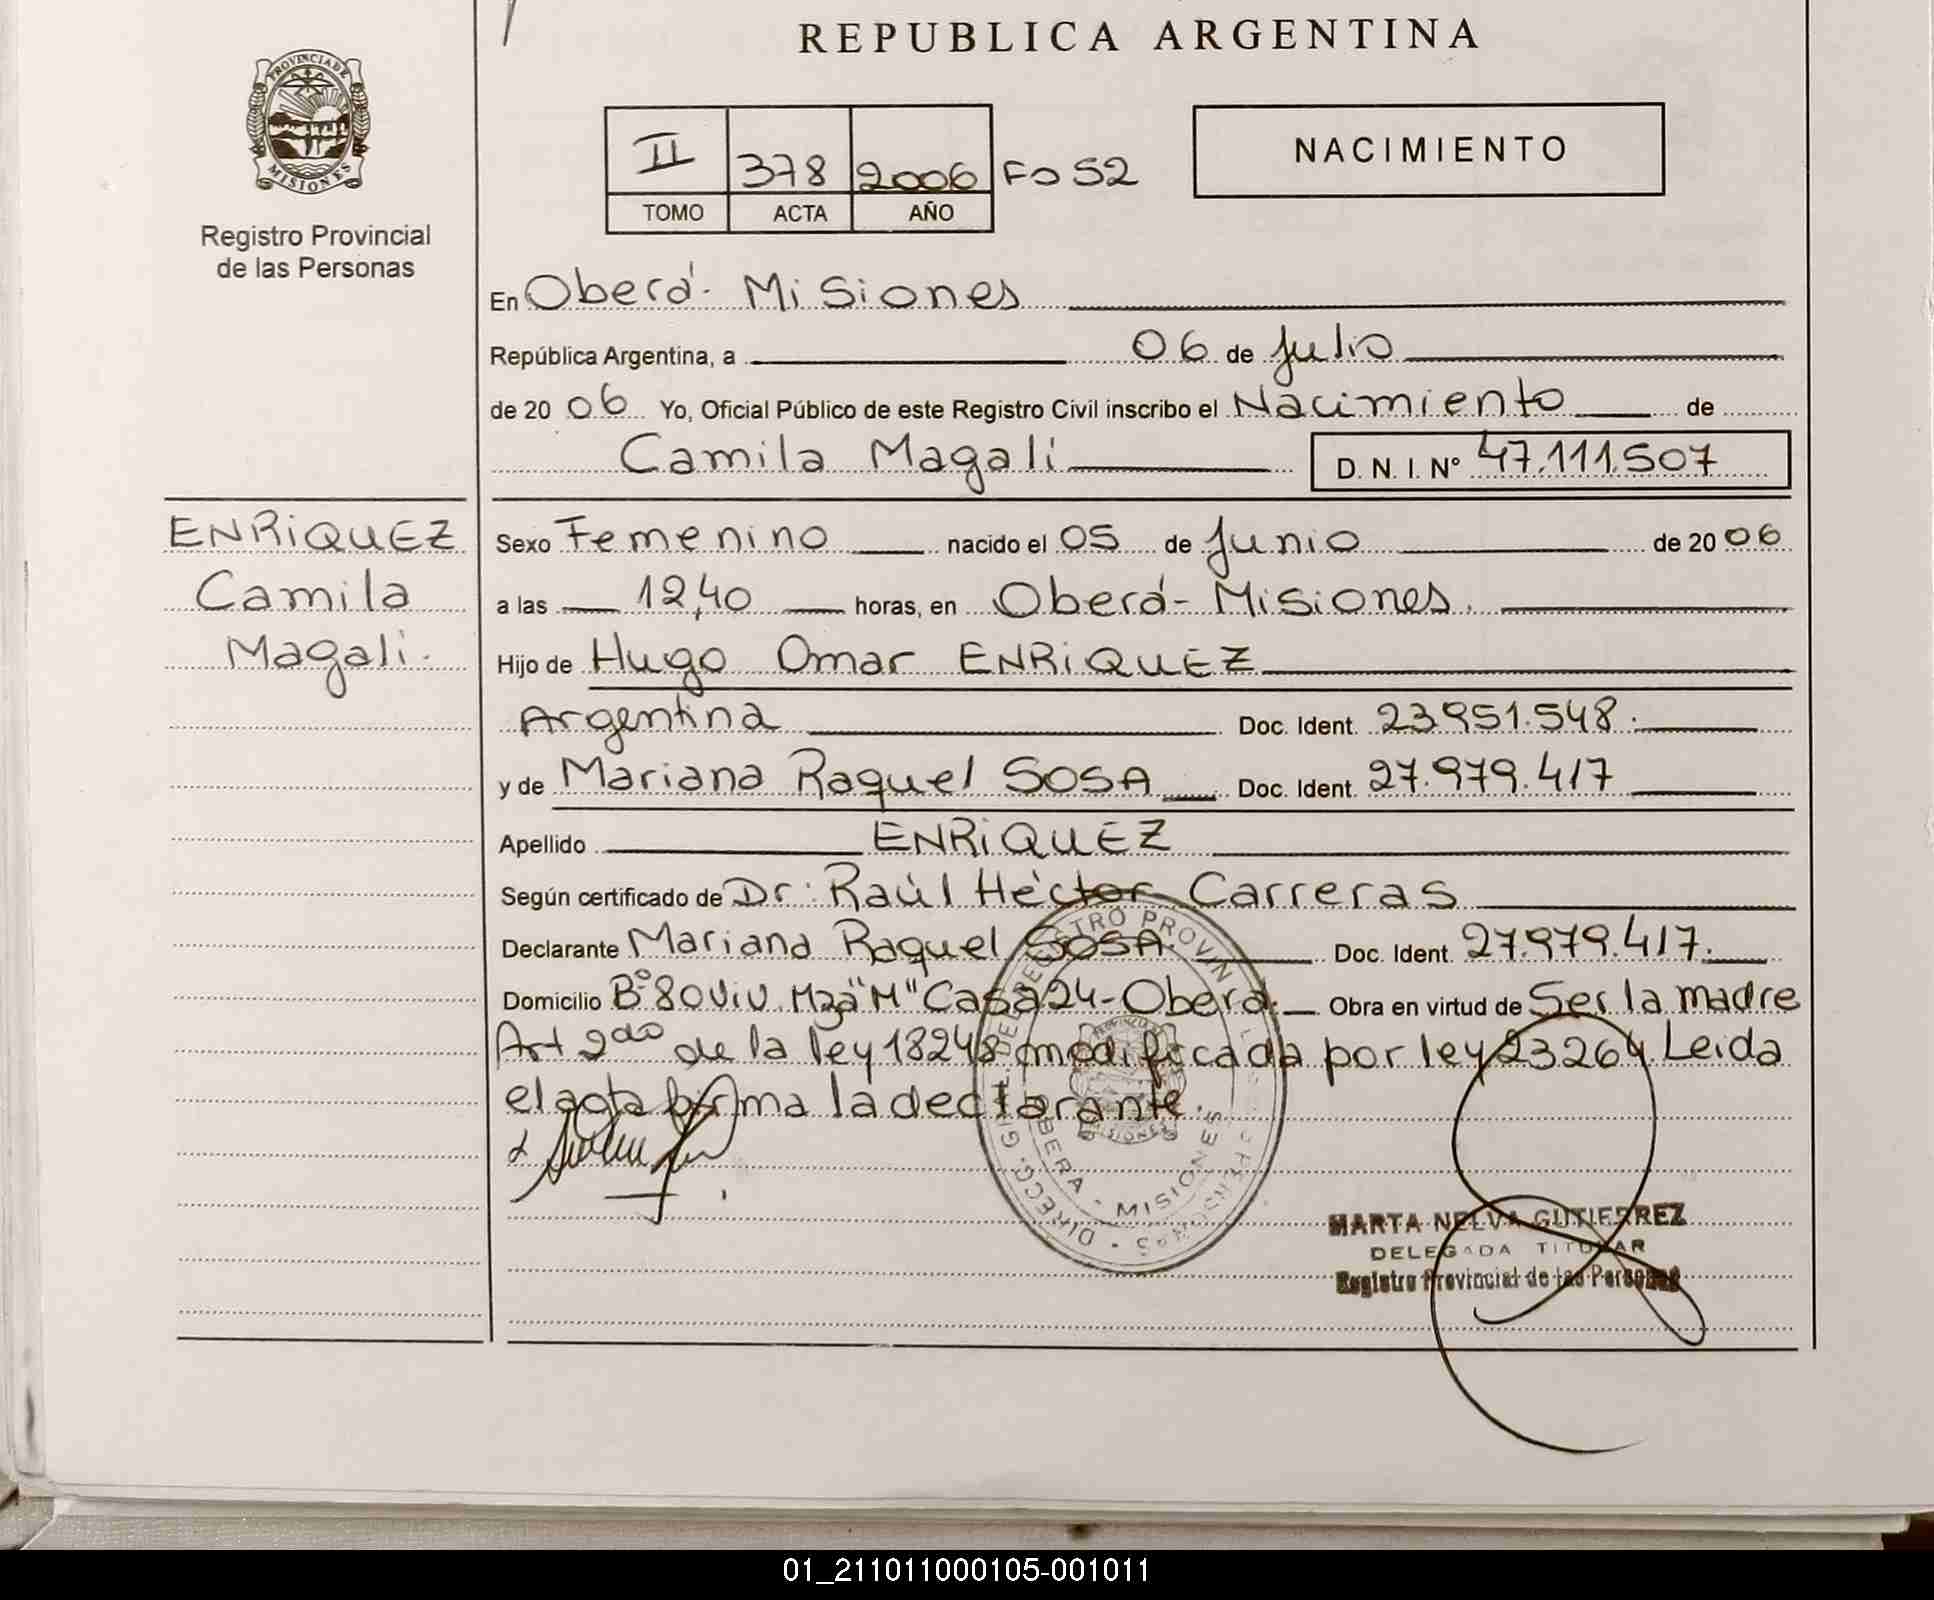 REPUBLICA ARGENTINA
PROVINCIA DE MISIONES
Registro Provincial
de las Personas
II 378 2006 Fo 52
TOMO ACTA AÑO
NACIMIENTO
En Oberá - Misiones
República Argentina, a 06 de Julio
de 20 06 Yo, Oficial Público de este Registro Civil inscribo el Nacimiento de
Camila Magali D. N. I. Nº 47.111.507
ENRIQUEZ
Camila
Magali.
Sexo Femenino nacido el 05 de Junio de 20 06
a las 12,40 horas, en Oberá - Misiones.
Hijo de Hugo Omar ENRIQUEZ
Argentina Doc. Ident. 23.951.548.
y de Mariana Raquel SOSA Doc. Ident. 27.979.417
Apellido ENRIQUEZ
Según certificado de Dr: Raúl Héctor Carreras
Declarante Mariana Raquel SOSA. Doc. Ident. 27.979.417.
Domicilio Bº 80 Viv. Mza "M" Casa 24 - Oberá. Obra en virtud de Ser la madre
Art 2do de la ley 18248 modificada por ley 23264. Leida
el acta firma la declarante.
OBERA - MISIONES
MARTA NELVA GUTIERREZ
DELEGADA TITULAR
Registro Provincial de las Personas
01_211011000105-001011